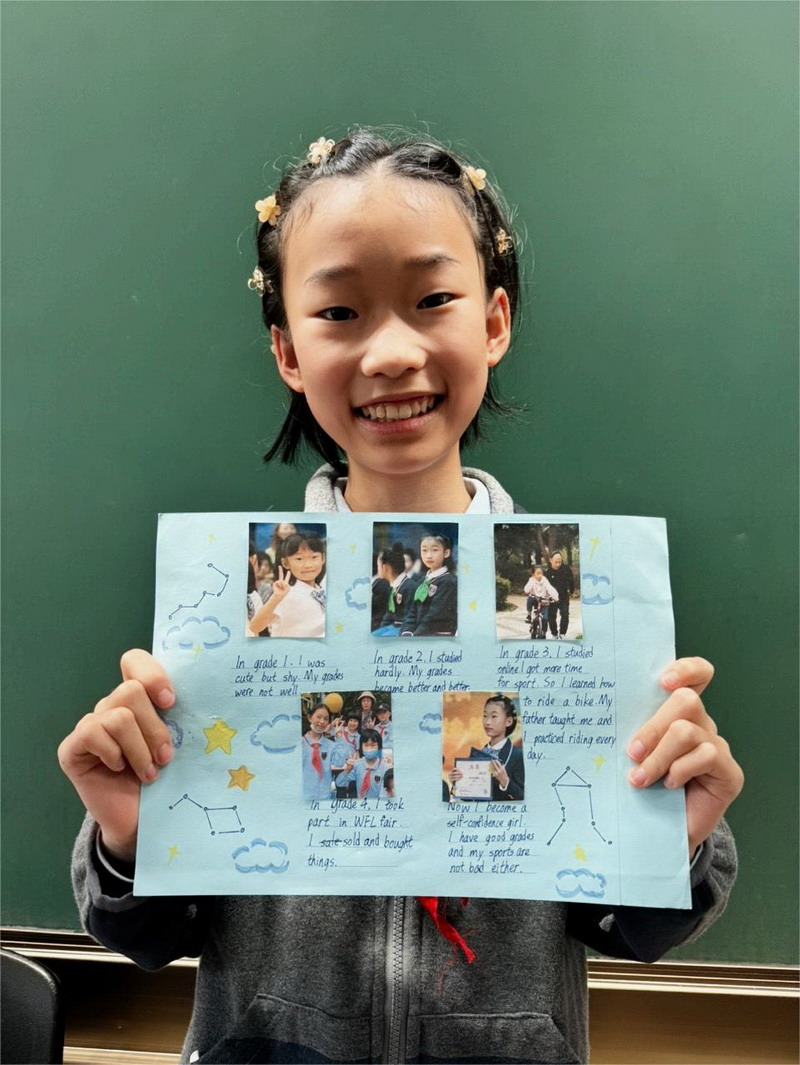 In grade 1. I was
cute but shy. My grades
were not well
In grade 2. I studied
hardly. My grades
became better and better.
In grade 3. I studied
online I got more time
for sport. So I learned how
to ride a bike. My
father taught me and
I practiced riding every
day.
In grade 4, I took
part in WFL fair.
I sale sold and bought
things.
Now I become a
self-confidence girl.
I have good grades
and my sports are
not bad either.